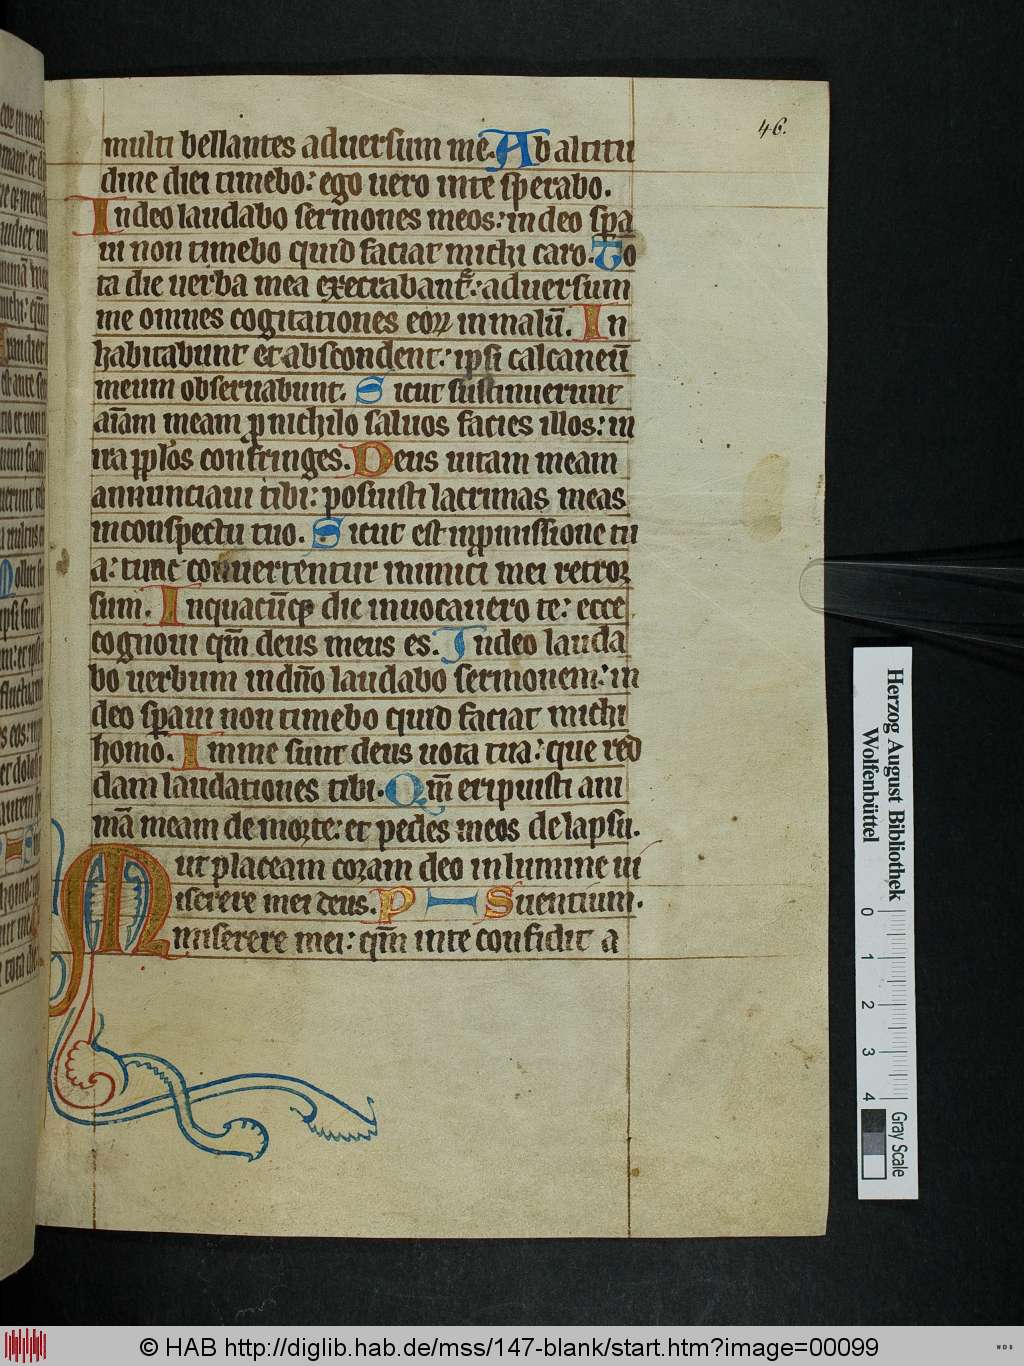 46.
multi bellantes aduersum me. Ab altitu
dine diei timebo: ego uero inte sperabo.
Indeo laudabo sermones meos: in deo spa
ui non timebo quid faciat michi caro. To
ta die uerba mea execrabant: aduersum
me omnes cogitationes eoꝝ in malū. In
habitabunt et abscondent: ipsi calcaneū
meum obseruabunt. Sicut sustinuerunt
aīam meam ꝓ nichilo saluos facies illos: in
ira pplos confringes. Deus uitam meam
annunciaui tibi: posuisti lacrimas meas
in conspectu tuo. Sicut est inpmissione tu
a: tunc conuertentur inimici mei retroꝛ
sum. Inquacūcꝫ die inuocauero te: ecce
cognoui qm̄ deus meus es. Indeo lauda
bo uerbum in dn̄o laudabo sermonem: in
deo spaui non timebo quid faciat michi
homo. Inme sunt deus uota tua: que red
dam laudationes tibi. Qm̄ eripuisti ani
mā meam de moꝛte: et pedes meos de lapsu.
ut placeam coꝛam deo in lumine ui
Miserere mei deus. P Suentium.
miserere mei: qm̄ inte confidit a
Herzog August Bibliothek
Wolfenbüttel
0 1 2 3 4
Gray Scale
© HAB http://diglib.hab.de/mss/147-blank/start.htm?image=00099